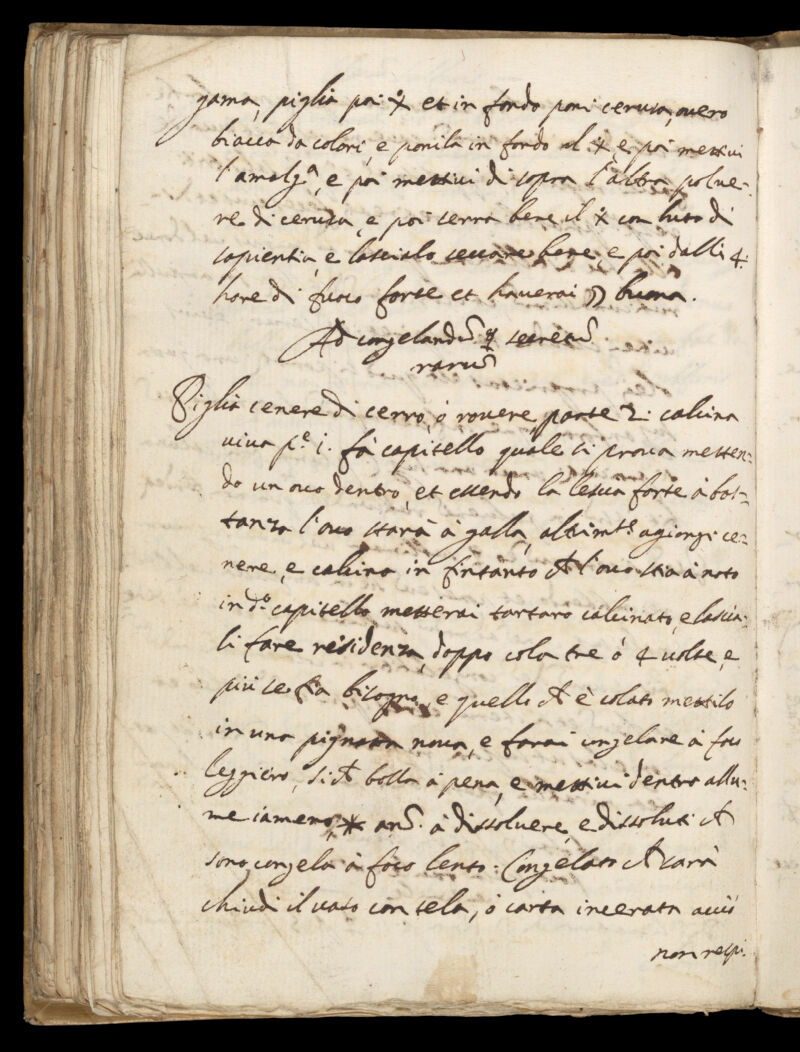 gama, piglia poi et in fondo poni cerusa, overo
biacca da colori, e ponila in fondo al e poi mettivi
l'amalg.a, e poi mettivi di sopra l'altra polve-
re di cerusa, e poi serra bene il con luto di
sapientia, e lascialo seccare bene, e poi dalli 4.
hore di fuoco forte et haverai ☽ buona.
Ad congelandũ ☿ secretũ
rarũ
Piglia cenere di cerro, ò rovere parte 2: calcina
viva p.e i. fà capitello quale si prova metten-
do un ovo dentro, et essendo la lescia forte à bas-
tanza l'ovo starà à galla, altim.te agiongi ce-
nere, e calcina in sintanto ch l'ovo stia à noto
in d.o capitello metterai tartaro calcinato, e lascia-
li fare residenza, doppo cola tre ò 4 volte, e
più se fia bisogno, e quello ch è colato mettilo
in una pignatta nova, e farai congelare à foco
leggiero, si ch bolla à pena, e mettivi dentro allu-
me iameno, * anã. à dissolvere, e dissoluti ch
sono congela à foco lento: Congelato ch sarà
chiudi il vaso con tela, ò carta incerata acciò
non respi-